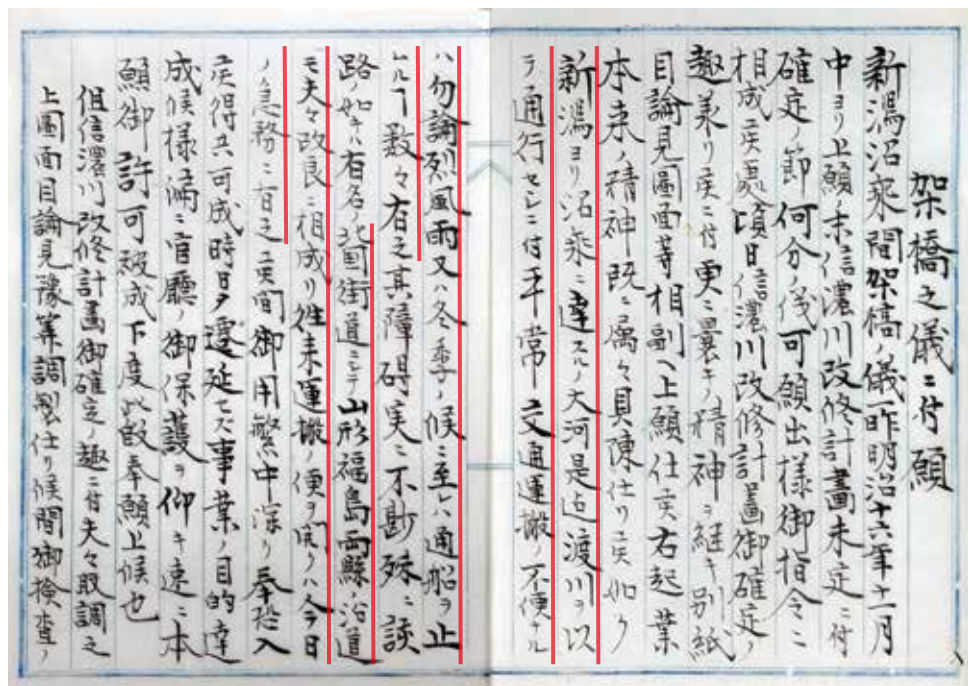 架橋之儀ニ付願
新潟沼垂間架橋ノ儀一昨明治十六年十一月
中ヨリ上願ノ末信濃川改修計畫未定ニ付
確定ノ節何分ノ儀可願出様御指令ニ
相成候處頃日信濃川改修計畫御確定ノ
趣承リ候ニ付更ニ曩キノ精神ヲ継キ別紙
目論見圖面等相副ヘ上願仕候右起業
本来ノ精神既ニ屬々具陳仕リ候如ク
新潟ヨリ沼垂ニ達スルノ大河是迠渡川ヲ以
テ通行セシニ付平常交通運搬ノ不便ナル
ハ勿論烈風雨又ハ冬季ノ候ニ至レハ通船ヲ止
ムルヿ数々有之其障碍実ニ不尠殊ニ該
路ノ如キハ有名ノ北國街道ニシテ山形福島両縣ノ沿道
モ夫々改良ニ相成リ徃来運搬ノ便ヲ開クハ今日
ノ急務ニ有之候間御用繁中深ク奉恐入
候得共可成時日ヲ遷延セス事業ノ目的達
成候様偏ニ官廳ノ御保護ヲ仰キ速ニ本
願御許可被成下度此段奉願上候也
但信濃川改修計畫御確定ノ趣ニ付夫々取調之
上圖面目論見豫筭調製仕リ候間御検査ノ